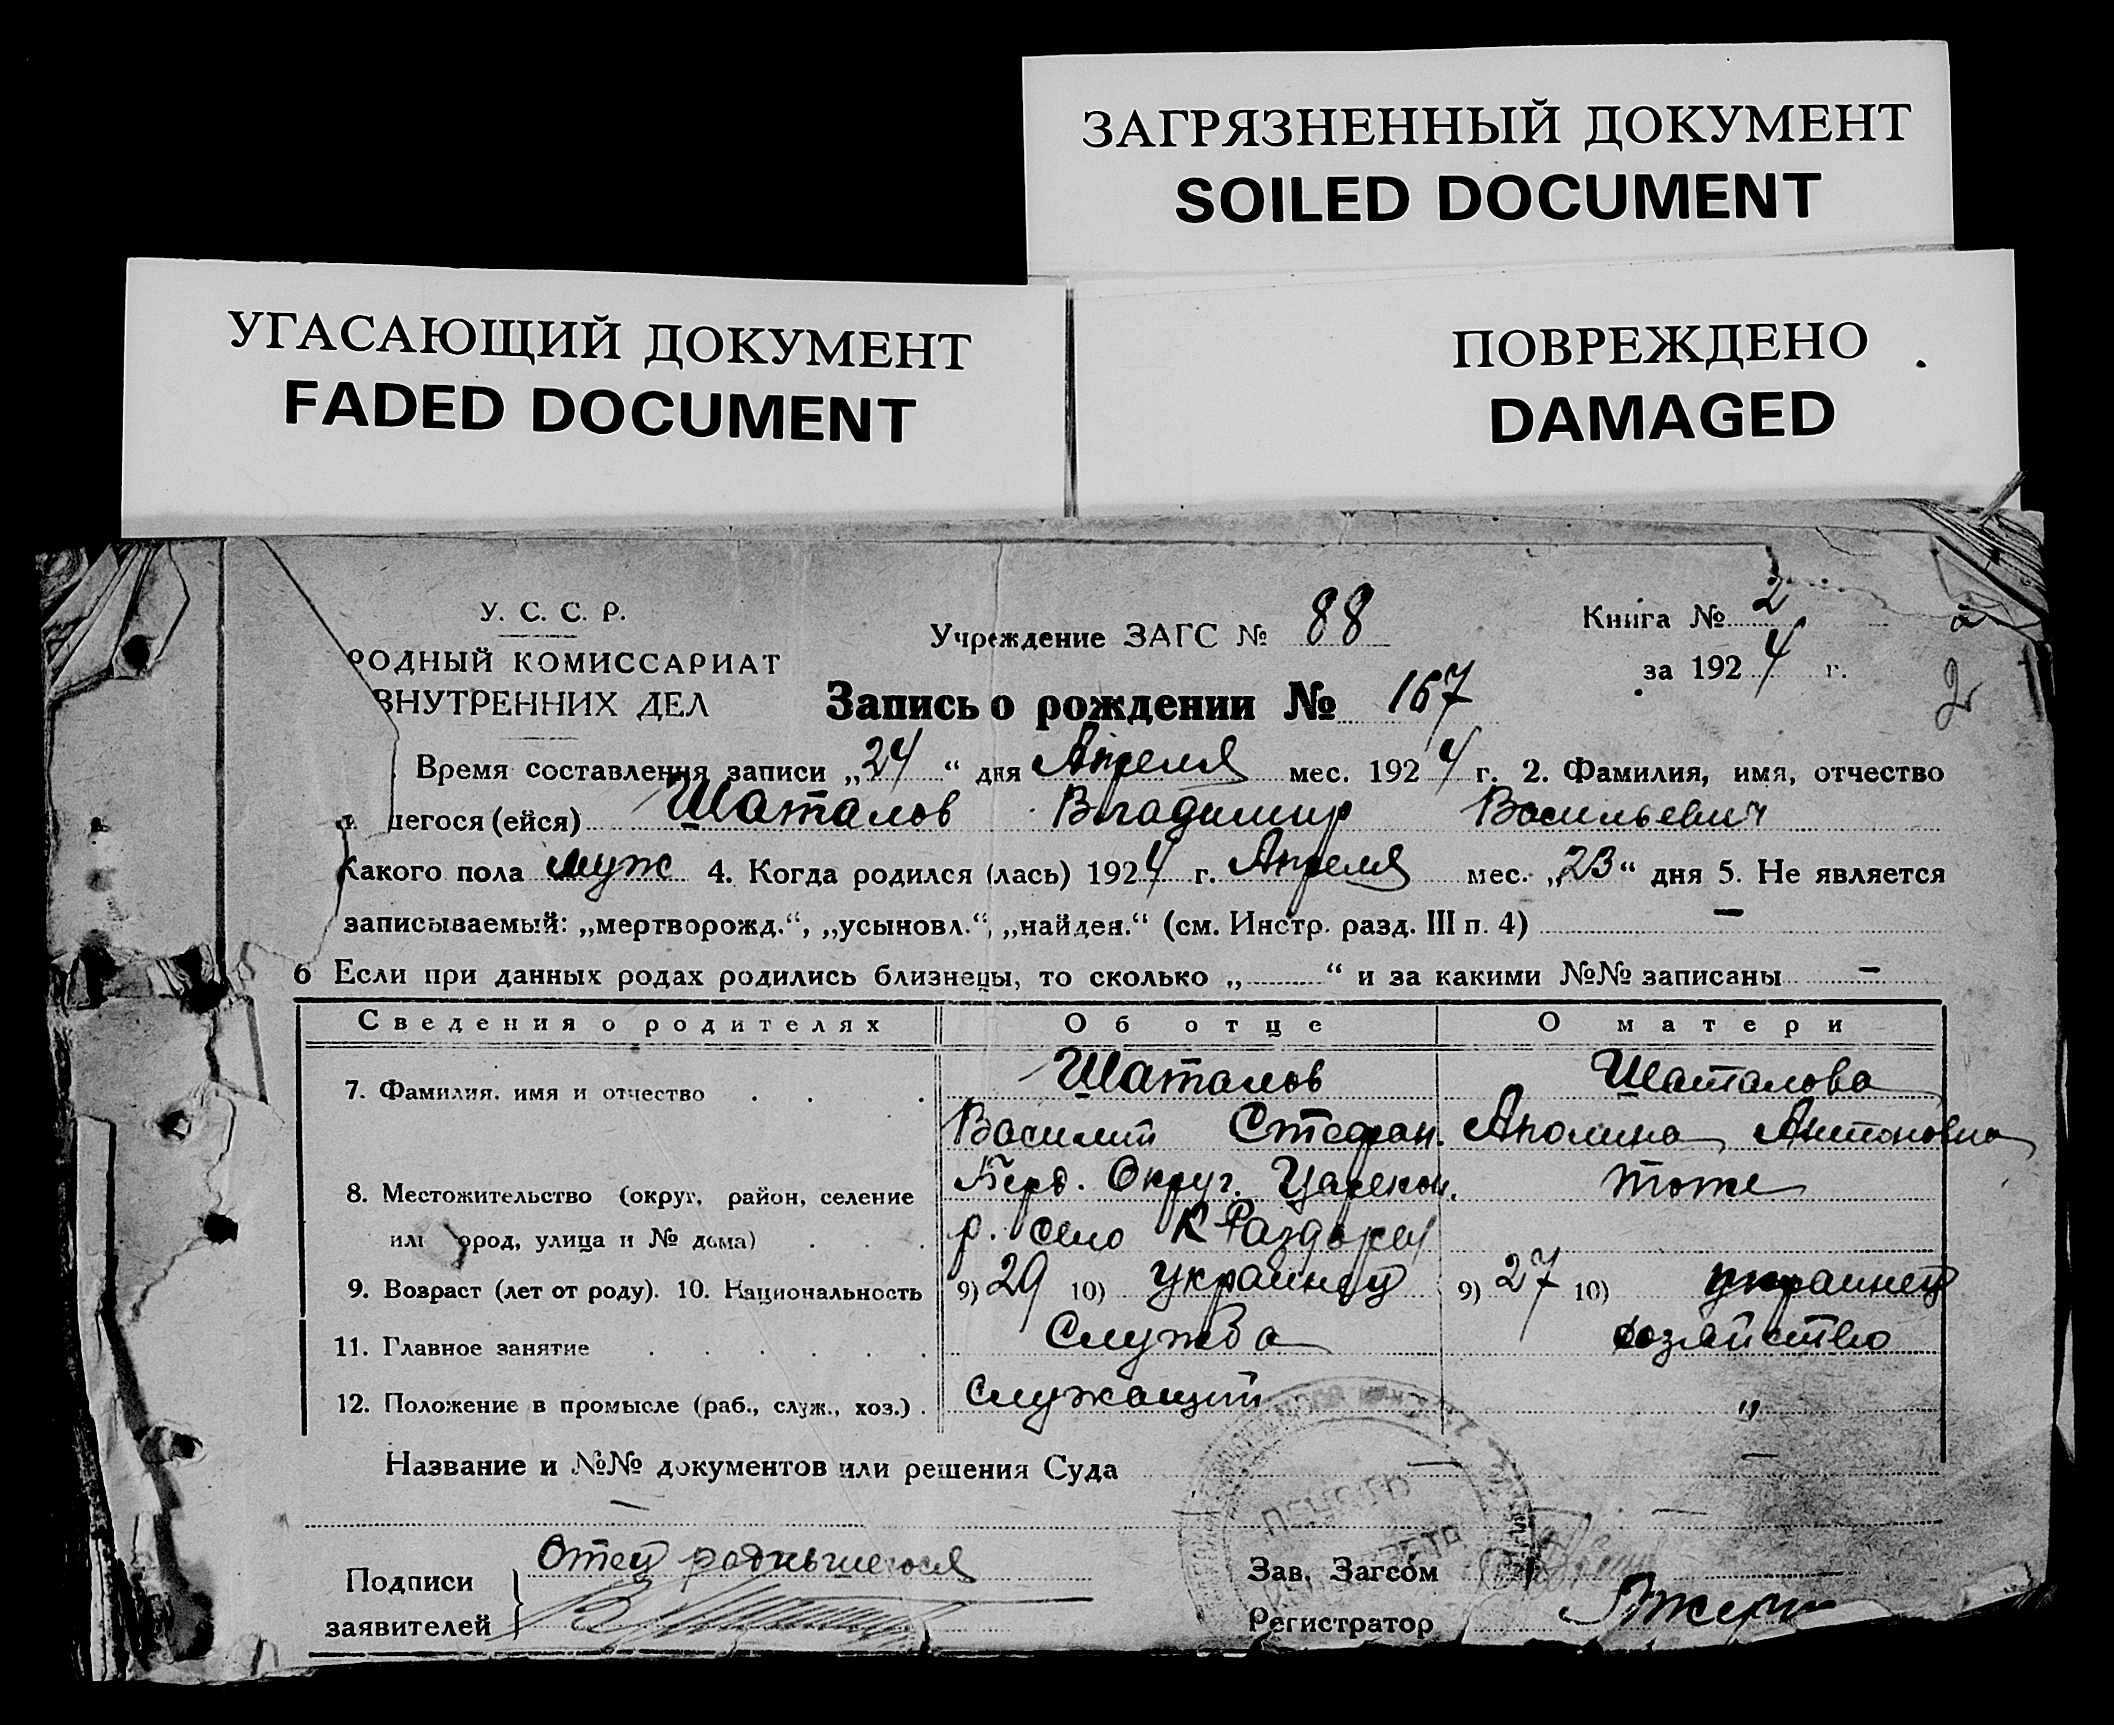 ЗАГРЯЗНЕННЫЙ ДОКУМЕНТ
SOILED DOCUMENT
УГАСАЮЩИЙ ДОКУМЕНТ
FADED DOCUMENT
ПОВРЕЖДЕНО
DAMAGED
У. С. С. Р.
РОДНЫЙ КОМИССАРИАТ
ВНУТРЕННИХ ДЕЛ
Учреждение ЗАГС № 88
Книга № 2
за 1924 г.
2
2
Запись о рождении № 167
Время составления записи „24“ дня Апреля мес. 1924 г. 2. Фамилия, имя, отчество
шегося (ейся) Шаталов Владимир Васильевич
Какого пола муж 4. Когда родился (лась) 1924 г. Апреля мес. „23“ дня 5. Не является
записываемый: „мертворожд.“, „усыновл.“, „найден.“ (см. Инстр. разд. III п. 4) —
6 Если при данных родах родились близнецы, то сколько „ “ и за какими №№ записаны —
Сведения о родителях Об отце О матери
7. Фамилия, имя и отчество Шаталов Шаталова
Василий Стефан. Аполина Антоновна
8. Местожительство (округ, район, селение Берд. Округ. Царекон. тоже
или город, улица и № дома) р. село К Раздоры
9. Возраст (лет от роду). 10. Национальность 9) 29 10) украинец 9) 27 10) украинец
11. Главное занятие Служба хозяйство
12. Положение в промысле (раб., служ., хоз.) служащий „
Название и №№ документов или решения Суда — —
Подписи Отец родившегося
заявителей
Зав. Загсом
Регистратор